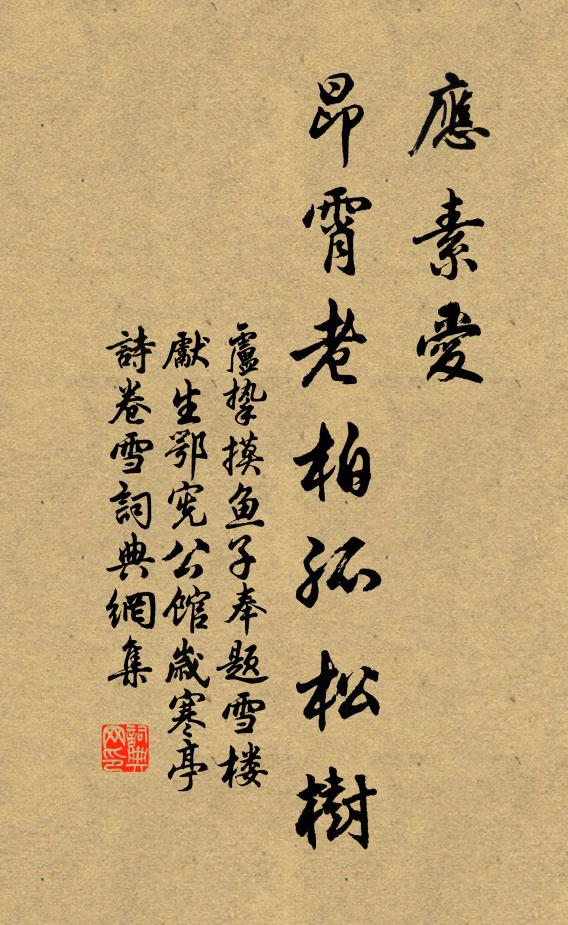 應素愛
昂霄老柏孤松樹
盧摯摸鱼子奉題雪楼
獻生鄂宪公館歲寒亭
詩卷雪詞典網集
詞典
网印